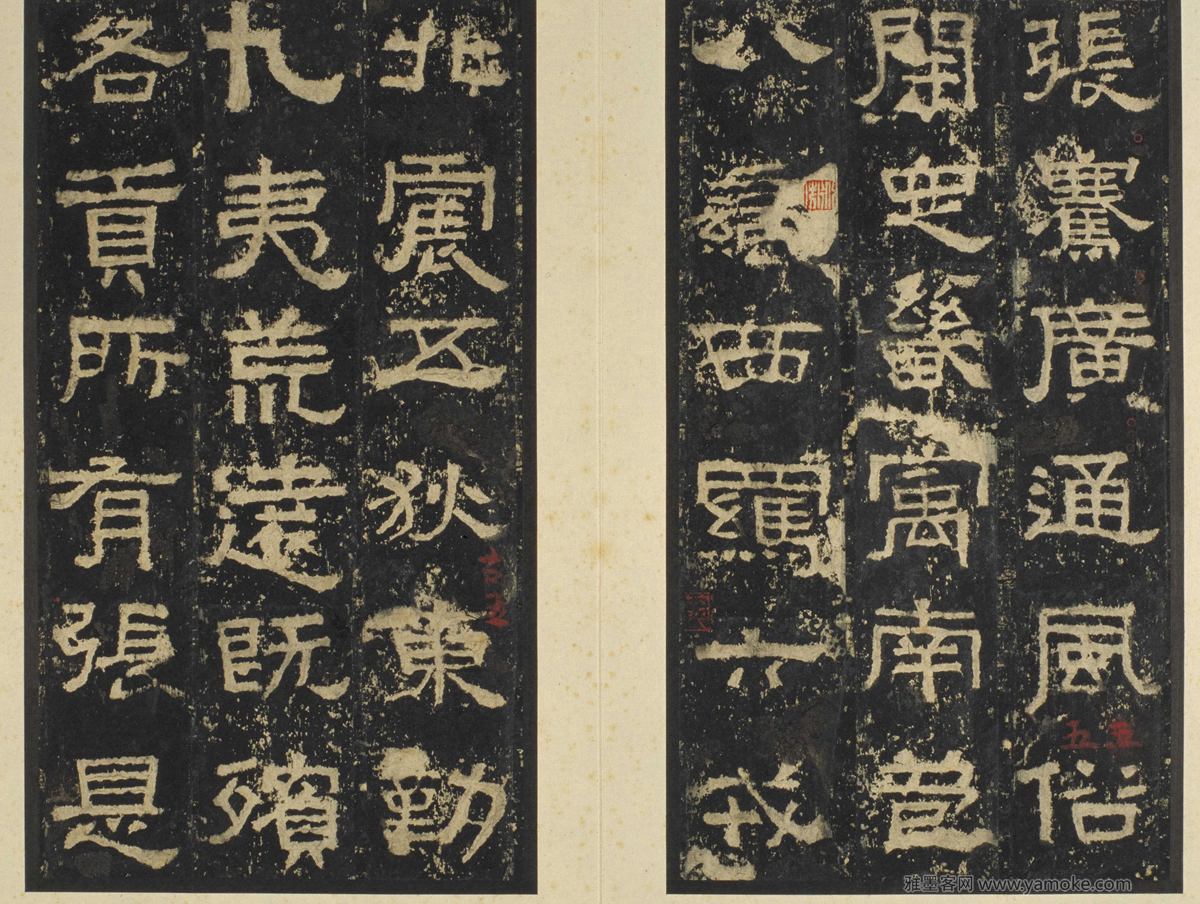 張騫廣通風俗
開定畿寓南苞
八蠻西羈六戎
北震五狄東勤
九夷荒遠既殯
各貢所有張是
雅墨客网 www.yamoke.com